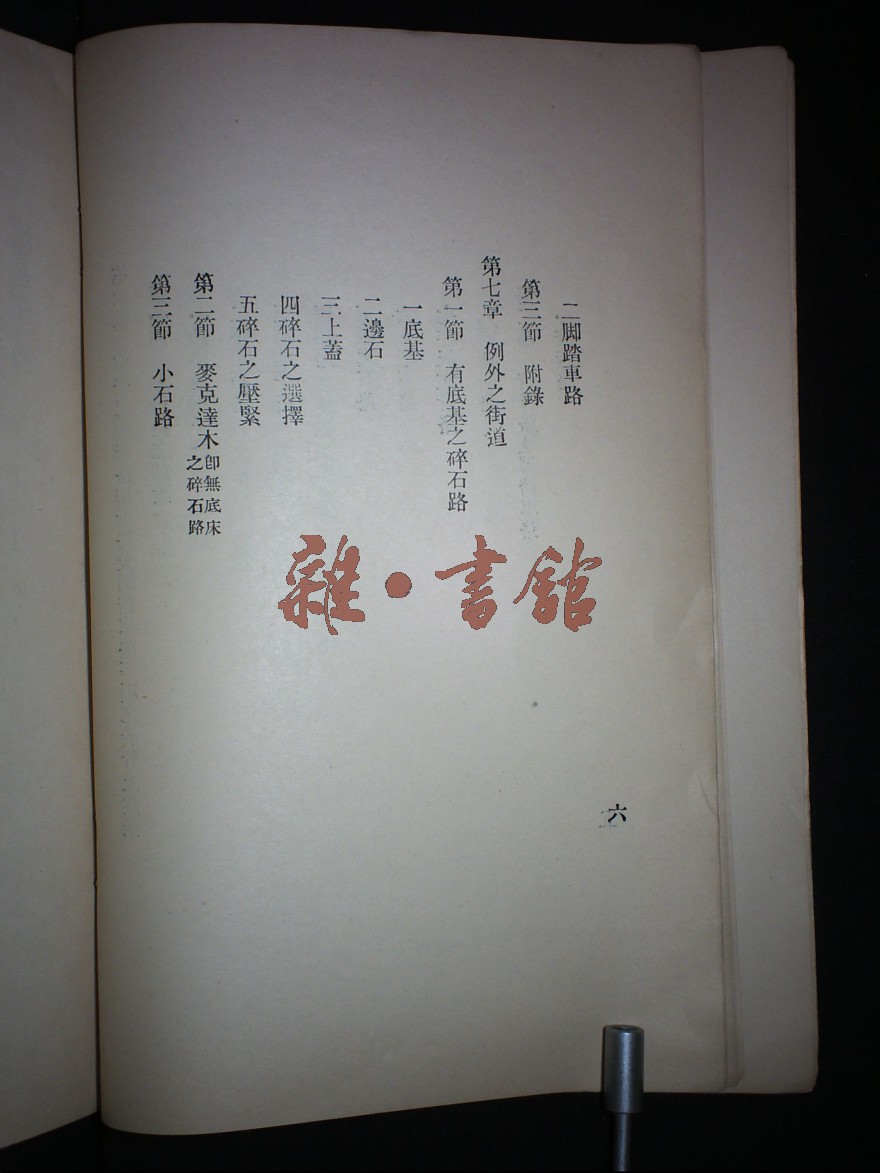 二脚踏車路
第三節　附錄
第七章　例外之街道
第一節　有底基之碎石路
一底基
二邊石
三上蓋
四碎石之選擇
五碎石之壓緊
第二節　麥克達木卽無底床之碎石路
第三節　小石路
六
雜·書館